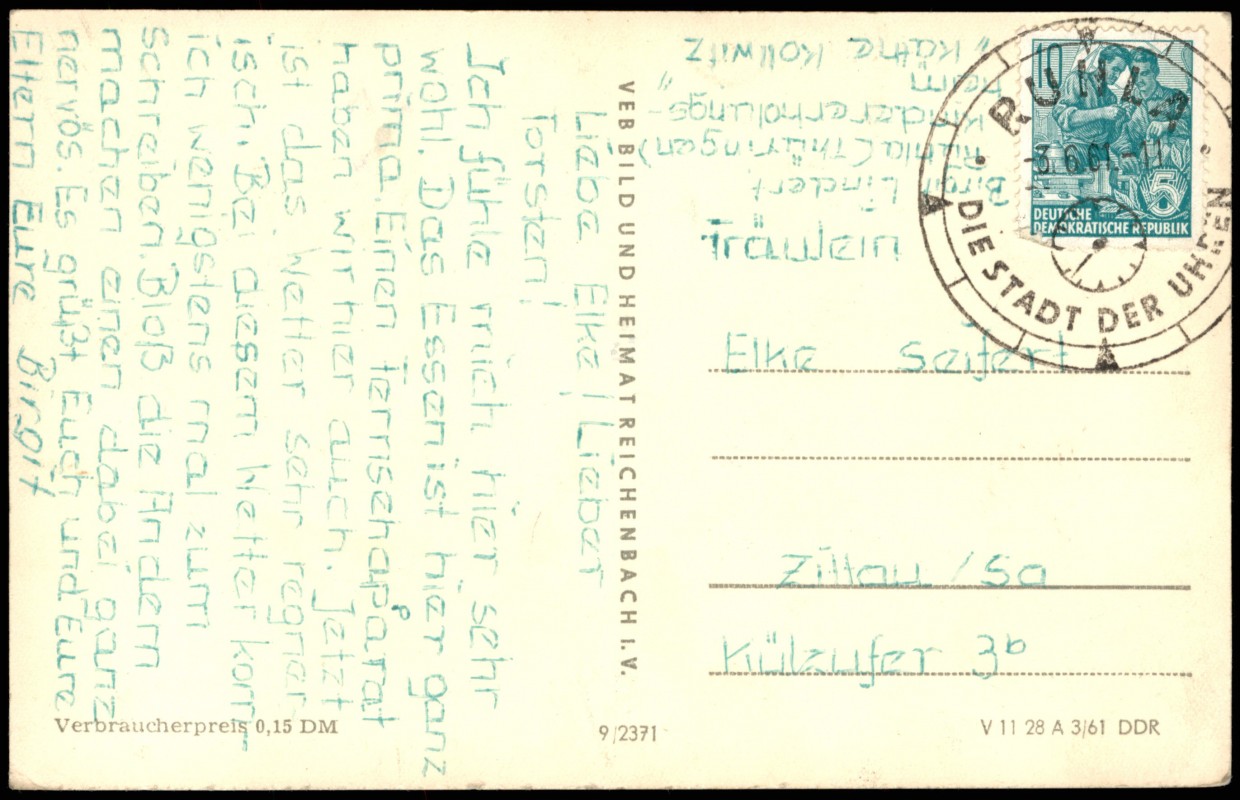 Liebe Elke! Lieber
Torsten!
Ich fühle mich hier sehr
wohl. Das Essen ist hier ganz
prima. Einen Fernsehaparat
haben wir hier auch. Jetzt
ist das Wetter sehr regner-
isch. Bei diesem Wetter kom-
ich wenigstens mal zum
schreiben. Bloß die Andern
machen einen dabei ganz
nervös. Es grüßt Euch und Eure
Eltern Eure Birgit
VEB BILD UND HEIMAT REICHENBACH I. V.
Birgit Lindert
Ruhla (Thüringen)
Kindererholungs-
heim
"Käthe Kollwitz"
10
DEUTSCHE
DEMOKRATISCHE REPUBLIK
5
RUHLA
-3.6.61.-11
DIE STADT DER UHREN
Fräulein
Elke Seifert
Zittau / Sa
Külzufer 3b
Verbraucherpreis 0,15 DM
9/2371
V 11 28 A 3/61 DDR